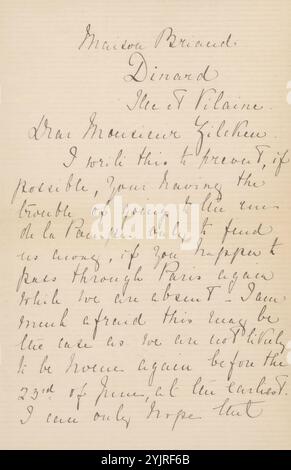 Maison Briand
Dinard
Ille et Vilaine.
Dear Monsieur Zilcken.
I write this to prevent, if
possible, your having the
trouble of going to the rue
de la Pompe only to find
us away, if you happen to
pass through Paris again
while we are absent - I am
much afraid this may be
the case as we are not likely
to be home again before the
23rd of June, at the earliest.
I can only hope that
alamy
Image ID: 2YJRF6B
www.alamy.com